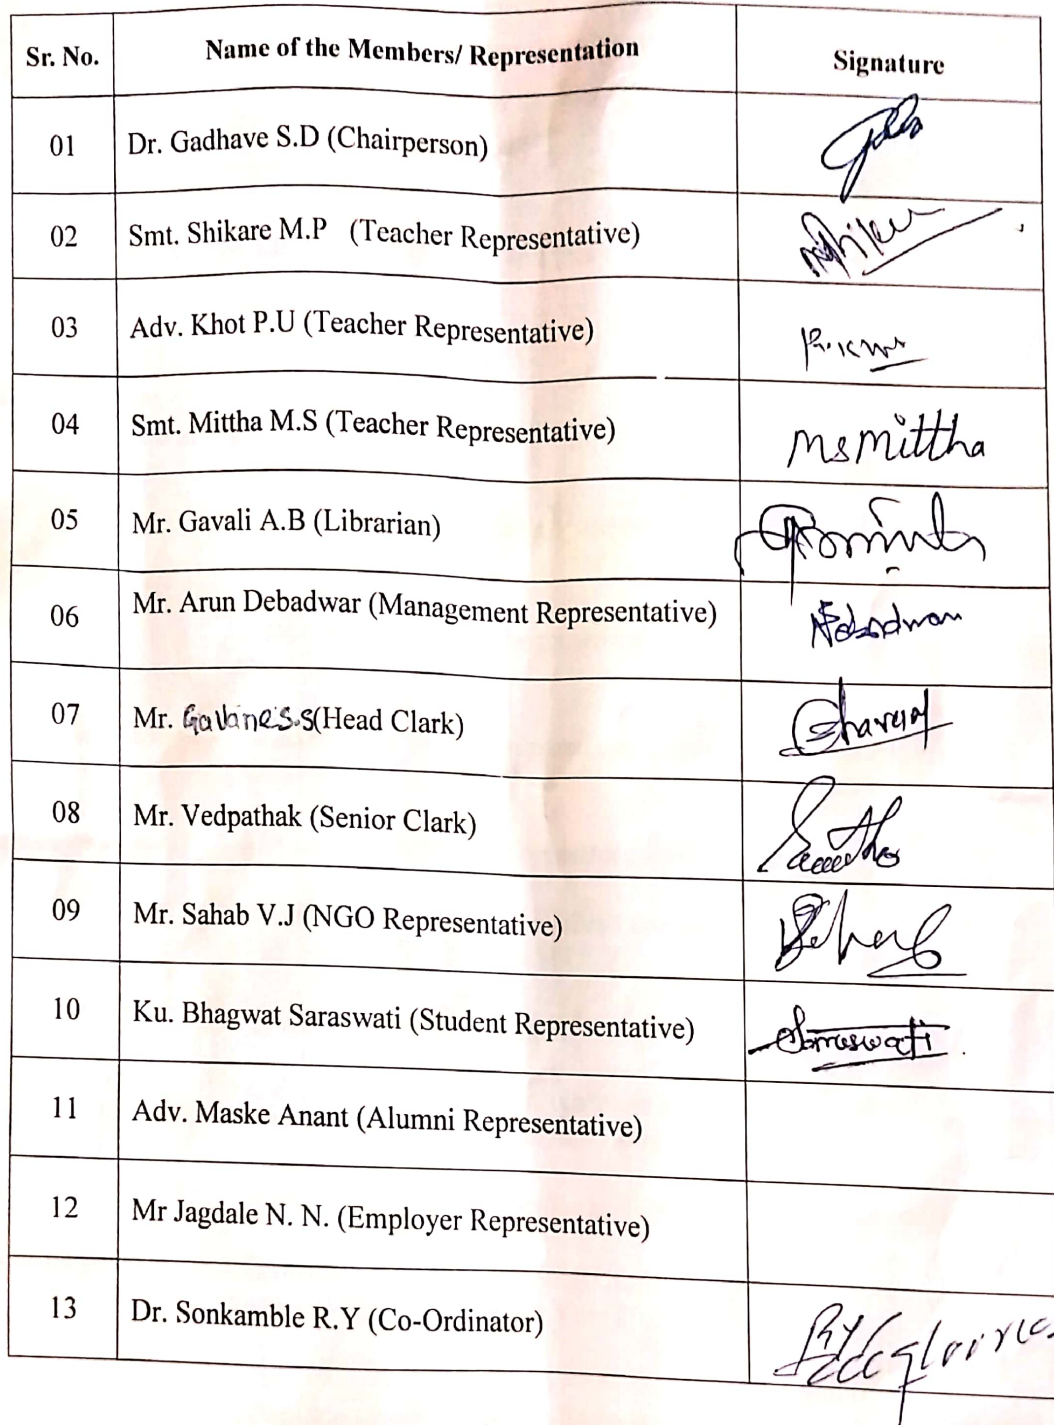 Sr. No. Name of the Members/ Representation Signature
01 Dr. Gadhave S.D (Chairperson)
02 Smt. Shikare M.P (Teacher Representative)
03 Adv. Khot P.U (Teacher Representative)
04 Smt. Mittha M.S (Teacher Representative) MsMittha
05 Mr. Gavali A.B (Librarian)
06 Mr. Arun Debadwar (Management Representative)
07 Mr. Gavane S.S(Head Clark)
08 Mr. Vedpathak (Senior Clark)
09 Mr. Sahab V.J (NGO Representative)
10 Ku. Bhagwat Saraswati (Student Representative) Saraswati
11 Adv. Maske Anant (Alumni Representative)
12 Mr Jagdale N. N. (Employer Representative)
13 Dr. Sonkamble R.Y (Co-Ordinator)